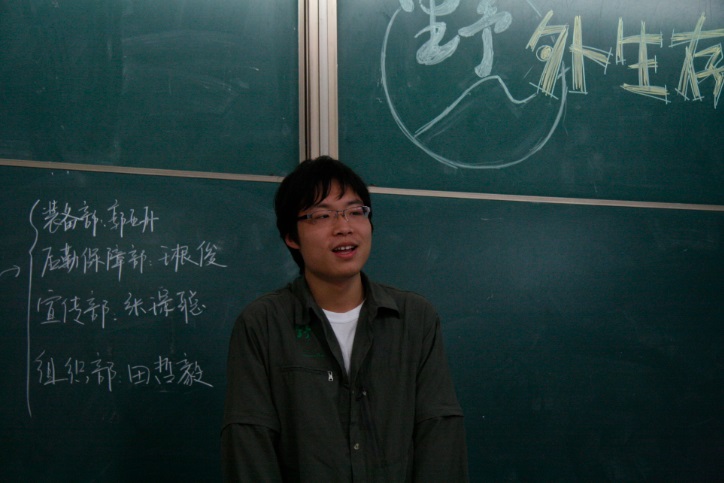 野外生存
装备部:郭
后勤保障部:王根俊
宣传部:张
组织部:田哲毅